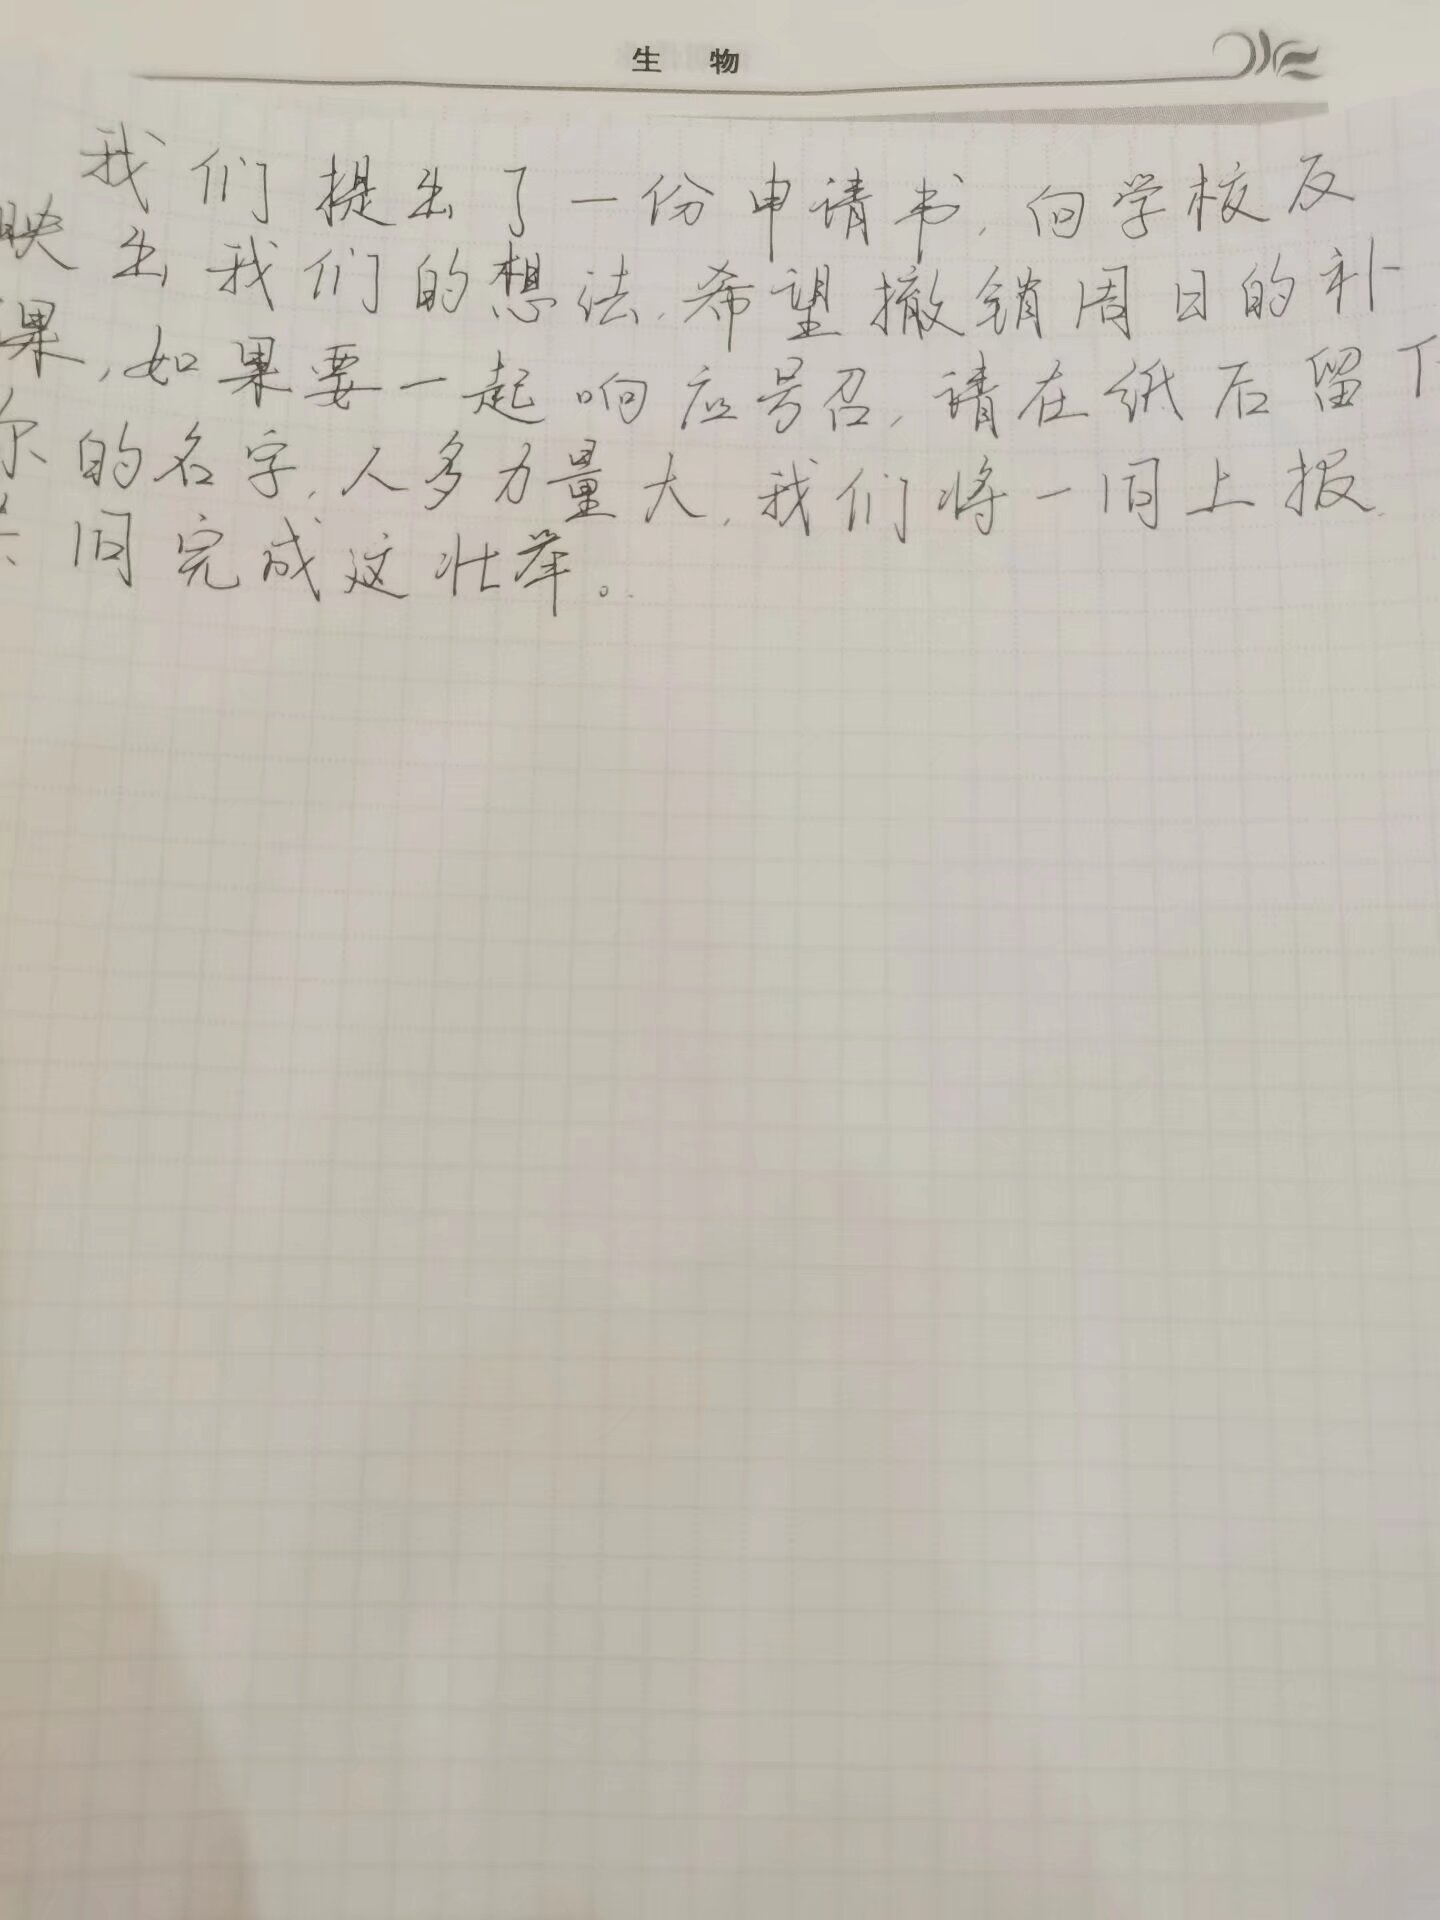 生 物
我们提出了一份申请书,向学校反
映出我们的想法,希望撤销周日的补
课,如果要一起响应号召,请在纸后留下
你的名字,人多力量大,我们将一同上报,
共同完成这壮举。